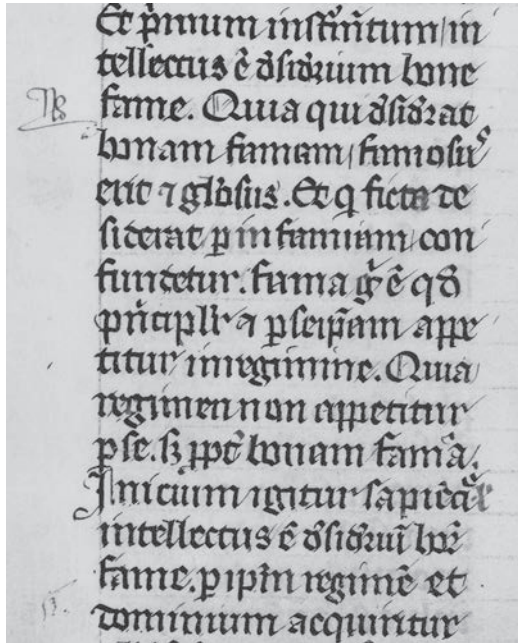 Et p̄mum instr̄ntum in
tellectus ē dsid̄rium bone
NB
fame. Quia qui dsid̄rat
bonam famam famosus
erit ⁊ gl̄osus. Et q ficta de
siderat p̱ infamiam con
fundetur. fama ḡ ē qd̄
pn̄cipl̄r ⁊ p̱ seip̄am appe
titur in regimine. Quia
regimen non appetitur
p̱ se. s̄ꝫ ppt̄ bonam famā.
Inicium igitur sapiēcie
intellectus ē dsid̄riū bōe
fame. p̱ ip̄m regimē et
dominium acquiritur